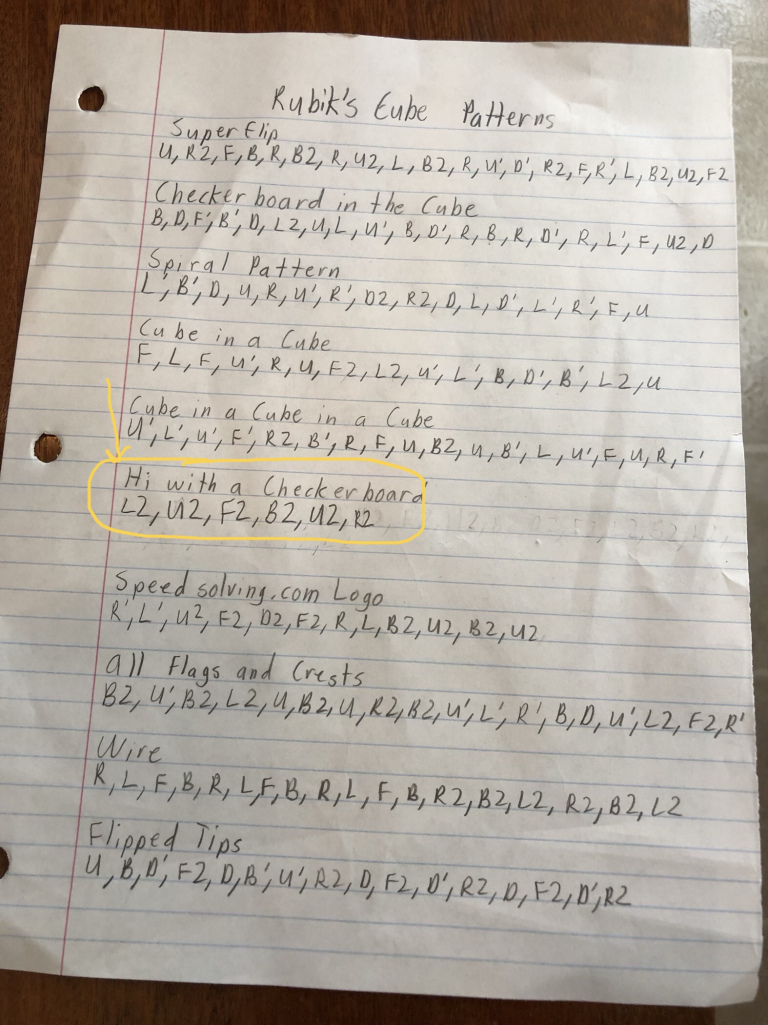 Rubik's Cube Patterns
Super Flip
U, R2, F, B, R, B2, R, U2, L, B2, R, U', D', R2, F, R', L, B2, U2, F2
Checker board in the Cube
B, D, F', B', D, L2, U, L, U', B, D', R, B, R, D', R, L', F, U2, D
Spiral Pattern
L', B', D, U, R, U', R', D2, R2, D, L, D', L', R', F, U
Cube in a Cube
F, L, F, U', R, U, F2, L2, U', L', B, D', B', L2, U
Cube in a Cube in a Cube
U', L', U', F', R2, B', R, F, U, B2, U, B', L, U', F, U, R, F'
Hi with a Checker board
L2, U2, F2, B2, U2, R2
Speed solving.com Logo
R', L', U2, F2, D2, F2, R, L, B2, U2, B2, U2
all Flags and Crests
B2, U', B2, L2, U, B2, U, R2, B2, U', L', R', B, D, U', L2, F2, R'
Wire
R, L, F, B, R, L, F, B, R, L, F, B, R2, B2, L2, R2, B2, L2
Flipped Tips
U, B, D', F2, D, B', U', R2, D, F2, D', R2, D, F2, D', R2